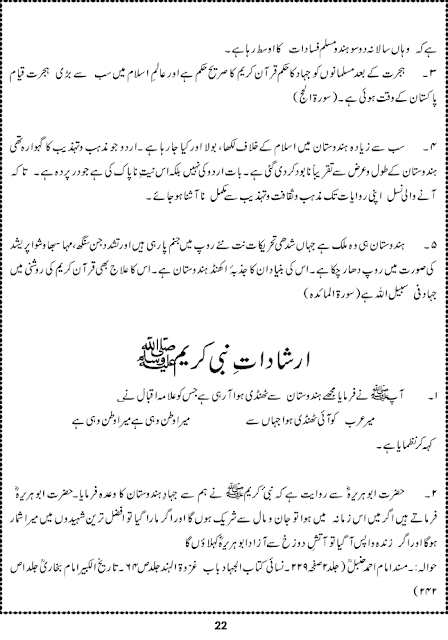 ہے کہ وہاں سالانہ دو سو ہندو مسلم فسادات کا اوسط رہا ہے۔
۳۔ ہجرت کے بعد مسلمانوں کو جہاد کا حکم قرآن کریم کا صریح حکم ہے اور عالمِ اسلام میں سب سے بڑی ہجرت قیام
پاکستان کے وقت ہوئی ہے۔ (سورۃ الحج)
۴۔ سب سے زیادہ ہندوستان میں اسلام کے خلاف لکھا، بولا اور کیا جا رہا ہے۔ اردو جو مذہب و تہذیب کا گہوارہ تھی
ہندوستان کے طول و عرض سے تقریباً نابود کر دی گئی ہے۔ بات اردو کی نہیں بلکہ اس نیتِ ناپاک کی ہے جو در پردہ ہے۔ تا کہ
آنے والی نسل اپنی روایات تک مذہب و ثقافت و تہذیب سے مکمل نا آشنا ہو جائے۔
۵۔ ہندوستان ہی وہ ملک ہے جہاں شدھی تحریکات نت نئے روپ میں جنم پا رہی ہیں اور تشدد جن سنگھ، مہا سبھا وشوا پریشد
کی صورت میں روپ دھار چکا ہے۔ اس کی بنیاد ان کا جذبۂ اکھنڈ ہندوستان ہے۔ اس کا علاج بھی قرآن کریم کی روشنی میں
جہاد فی سبیل اللہ ہے (سورۃ المائدہ)
ارشاداتِ نبی کریم ﷺ
۱۔ آپ ﷺ نے فرمایا مجھے ہندوستان سے ٹھنڈی ہوا آ رہی ہے جس کو علامہ اقبال نے۔
میر عرب کو آئی ٹھنڈی ہوا جہاں سے میرا وطن وہی ہے میرا وطن وہی ہے
کہہ کر نظمایا ہے۔
۲۔ حضرت ابو ہریرہؓ سے روایت ہے کہ نبی کریم ﷺ نے ہم سے جہادِ ہندوستان کا وعدہ فرمایا۔ حضرت ابو ہریرہؓ
فرماتے ہیں اگر میں اس زمانہ میں ہوا تو جان و مال سے شریک ہوں گا اور اگر مارا گیا تو افضل ترین شہیدوں میں میرا شمار
ہو گا اور اگر زندہ واپس آ گیا تو آتشِ دوزخ سے آزاد ابو ہریرہؓ کہلاؤں گا
حوالہ:۔ مسند امام احمد حنبلؒ (جلد ۲ صفحہ ۲۲۹۔ نسائی کتاب الجہاد باب غزوۃ الہند جلد ص ۶۴۔ تاریخ الکبیر امام بخاریؒ جلد اص
۲۴۲)
22